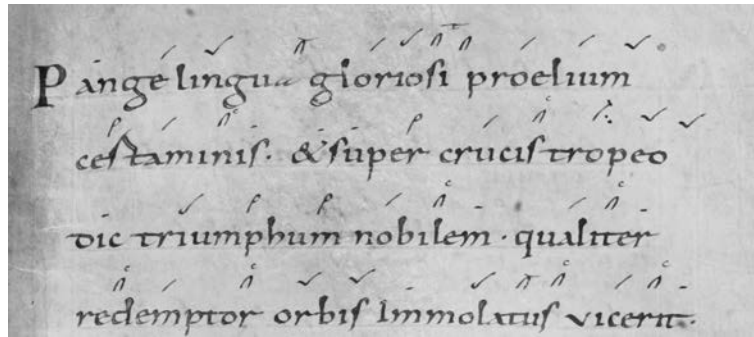 Pange lingua gloriosi proelium
certaminis. & super crucis tropeo
dic triumphum nobilem. qualiter
redemptor orbis Immolatus vicerit.